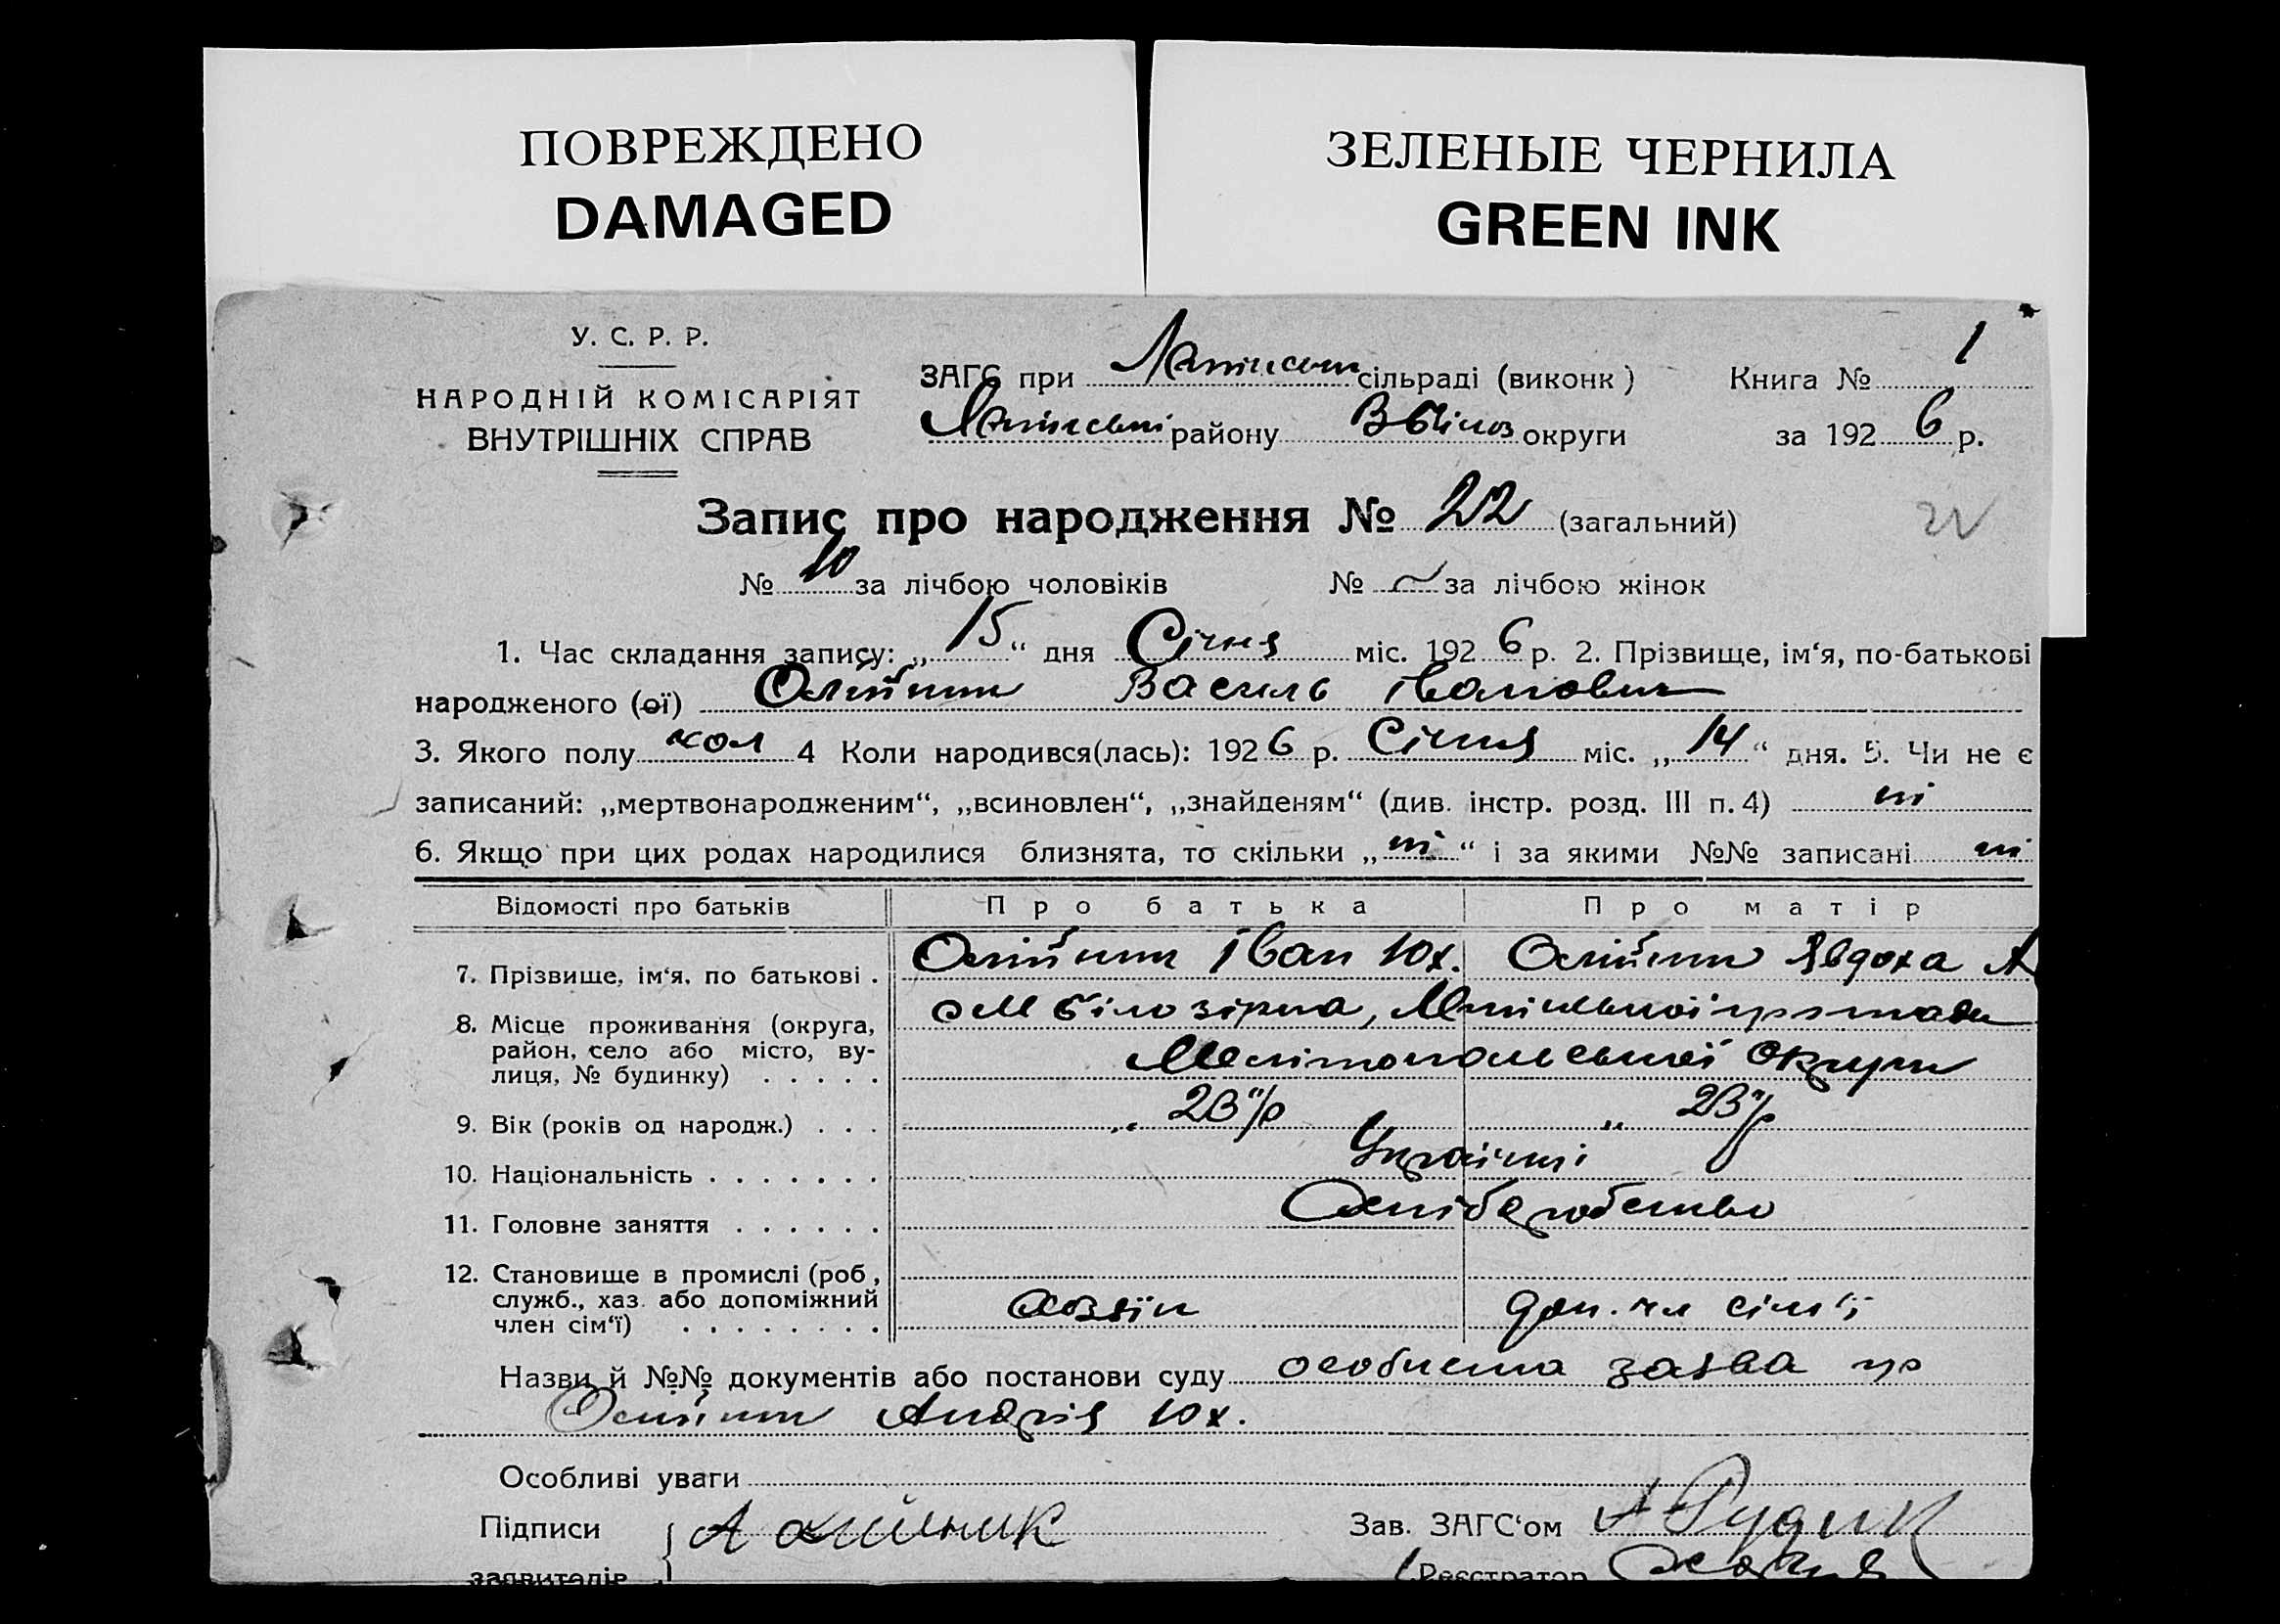 ПОВРЕЖДЕНО
DAMAGED
ЗЕЛЕНЫЕ ЧЕРНИЛА
GREEN INK
У. С. Р. Р.
НАРОДНІЙ КОМІСАРІЯТ
ВНУТРІШНІХ СПРАВ
ЗАГС при сільраді (виконк) Книга № 1
району округи за 1926 р.
Запис про народження № 22 (загальний)
22
№ 10 за лічбою чоловіків № за лічбою жінок
1. Час складання запису: „15“ дня Січня міс. 1926 р. 2. Прізвище, ім‘я, по-батькові
народженого (ої) Олійник Василь Іванович
3. Якого полу чол 4 Коли народився(лась): 1926 р. Січня міс. „14“ дня. 5. Чи не є
записаний: „мертвонародженим“, „всиновлен“, „знайденям“ (див. інстр. розд. III п. 4) ні
6. Якщо при цих родах народилися близнята, то скільки „ні“ і за якими №№ записані ні
Відомості про батьків Про батька Про матір
7. Прізвище, ім‘я, по батькові . Олійник Іван Юх. Олійник Явдоха А
8. Місце проживання (округа,
район, село або місто, ву-
лиця, № будинку) . . . . .
с М Білозірка,
Мелітопольської Округи
9. Вік (років од народж.) . . . „ 23 „ 23
10. Національність . . . . . . . Українці
11. Головне заняття . . . . . . Хліборобство
12. Становище в промислі (роб,
служб., хаз. або допоміжний
член сім‘ї) . . . . . . . .
Хозяїн доп. чл сім'ї
Назви й №№ документів або постанови суду особиста заява гр
Олійник Андрія Юх.
Особливі уваги
Підписи А Олійник Зав. ЗАГС‘ом А Рудик
заявителів Реєстратор